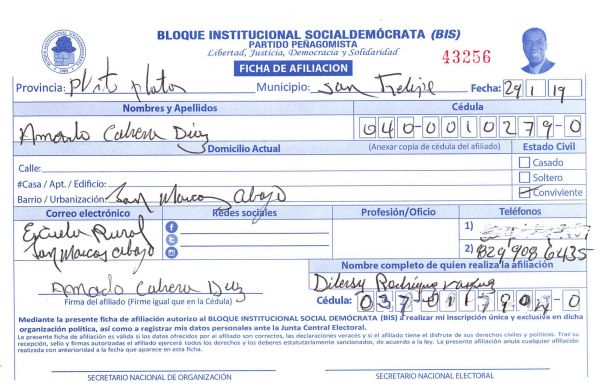 BLOQUE INSTITUCIONAL SOCIALDEMÓCRATA (BIS)
PARTIDO PEÑAGOMISTA
Libertad, Justicia, Democracia y Solidaridad
43256
FICHA DE AFILIACION
Provincia: Municipio: San Felipe Fecha: 29/1/19
Nombres y Apellidos Cédula
Amado Cabrera Diaz 040-0010279-0
Domicilio Actual (Anexar copia de cédula del afiliado) Estado Civil
Calle: Casado
#Casa / Apt. / Edificio: Soltero
Barrio / Urbanización: San Marcos abajo Conviviente
Correo electrónico Redes sociales Profesión/Oficio Teléfonos
Escuela Rural 1)
San Marcos abajo 2) 829 908 6435
Nombre completo de quien realiza la afiliación
Amado Cabrera Diaz Rodriguez
Firma del afiliado (Firme igual que en la Cédula) Cédula:
Mediante la presente ficha de afiliación autorizo al BLOQUE INSTITUCIONAL SOCIAL DEMÓCRATA (BIS) a realizar mi inscripción única y exclusiva en dicha
organización política, así como a registrar mis datos personales ante la Junta Central Electoral.
La presente ficha de afiliación es válida si los datos ofrecidos por el afiliado son correctos, las declaraciones veraces y si el afiliado tiene el disfrute de sus derechos civiles y políticos. Tras su
recepción, sello y firmas autorizadas el afiliado ejercerá todos los derechos y los deberes estatutariamente sancionados, de acuerdo a la ley. La presente afiliación anula cualquier afiliación
realizada con anterioridad a la fecha que aparece en esta ficha.
SECRETARIO NACIONAL DE ORGANIZACIÓN SECRETARIO NACIONAL ELECTORAL